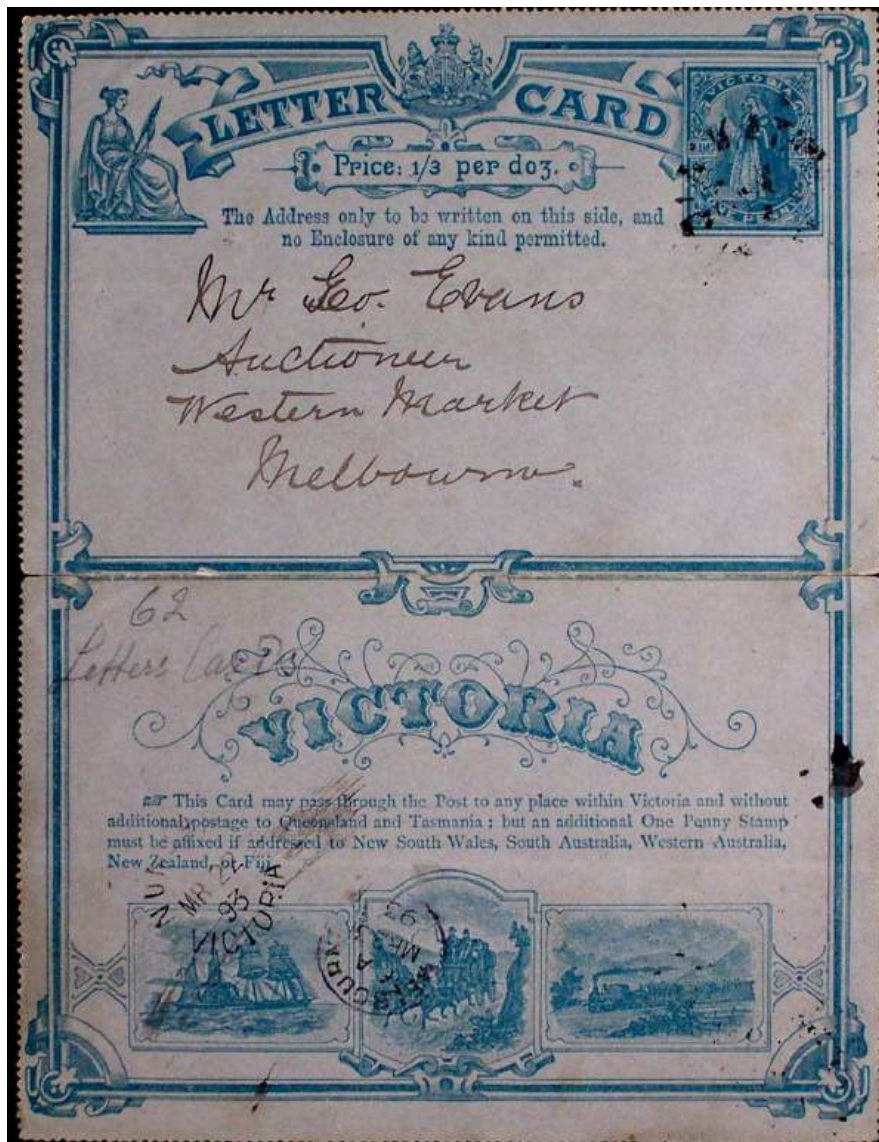 LETTER CARD
Price: 1/3 per doz.
VICTORIA
The Address only to be written on this side, and
no Enclosure of any kind permitted.
Mr Geo. Evans
Auctioneer
Western Market
Melbourne.
62
Letters Cards
VICTORIA
☞ This Card may pass through the Post to any place within Victoria and without
additional postage to Queensland and Tasmania; but an additional One Penny Stamp
must be affixed if addressed to New South Wales, South Australia, Western Australia,
New Zealand, or Fiji.
MR
93
VICTORIA
93
MR